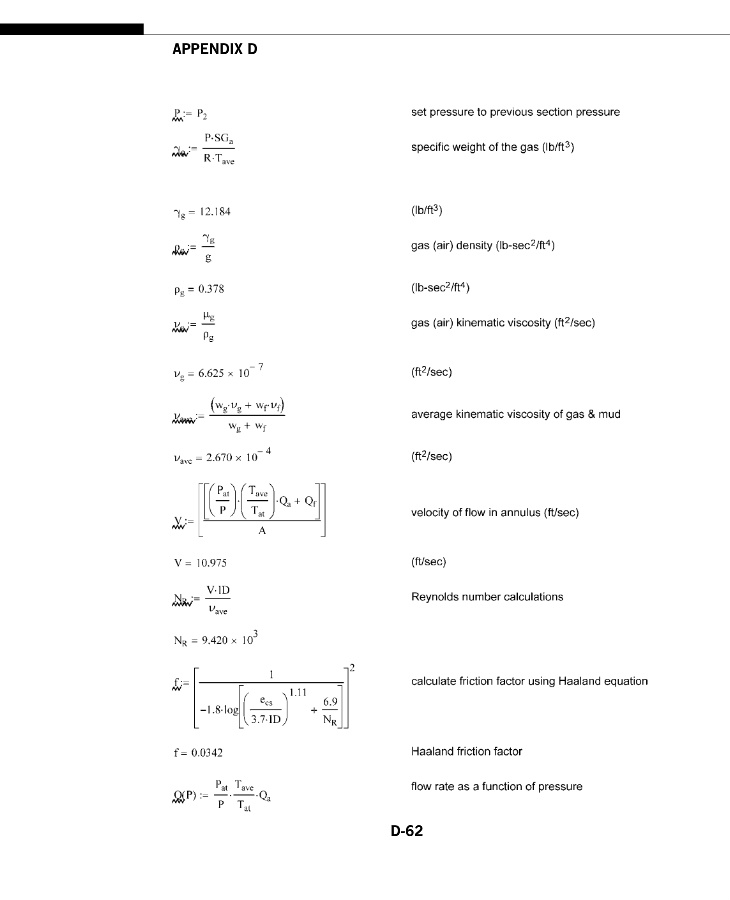 APPENDIX D
P := P₂ set pressure to previous section pressure
γg := P·SGa / R·Tave specific weight of the gas (lb/ft³)
γg = 12.184 (lb/ft³)
ρg := γg / g gas (air) density (lb-sec²/ft⁴)
ρg = 0.378 (lb-sec²/ft⁴)
νg := μg / ρg gas (air) kinematic viscosity (ft²/sec)
νg = 6.625 × 10⁻⁷ (ft²/sec)
νave := (wg·υg + wf·υf) / wg + wf average kinematic viscosity of gas & mud
νave = 2.670 × 10⁻⁴ (ft²/sec)
V := [[[(Pat / P)·(Tave / Tat)·Qa + Qf]] / A] velocity of flow in annulus (ft/sec)
V = 10.975 (ft/sec)
NR := V·ID / υave Reynolds number calculations
NR = 9.420 × 10³
f := [1 / −1.8·log[(ecs / 3.7·ID)^1.11 + 6.9 / NR]]² calculate friction factor using Haaland equation
f = 0.0342 Haaland friction factor
Q(P) := Pat / P · Tave / Tat · Qa flow rate as a function of pressure
D-62